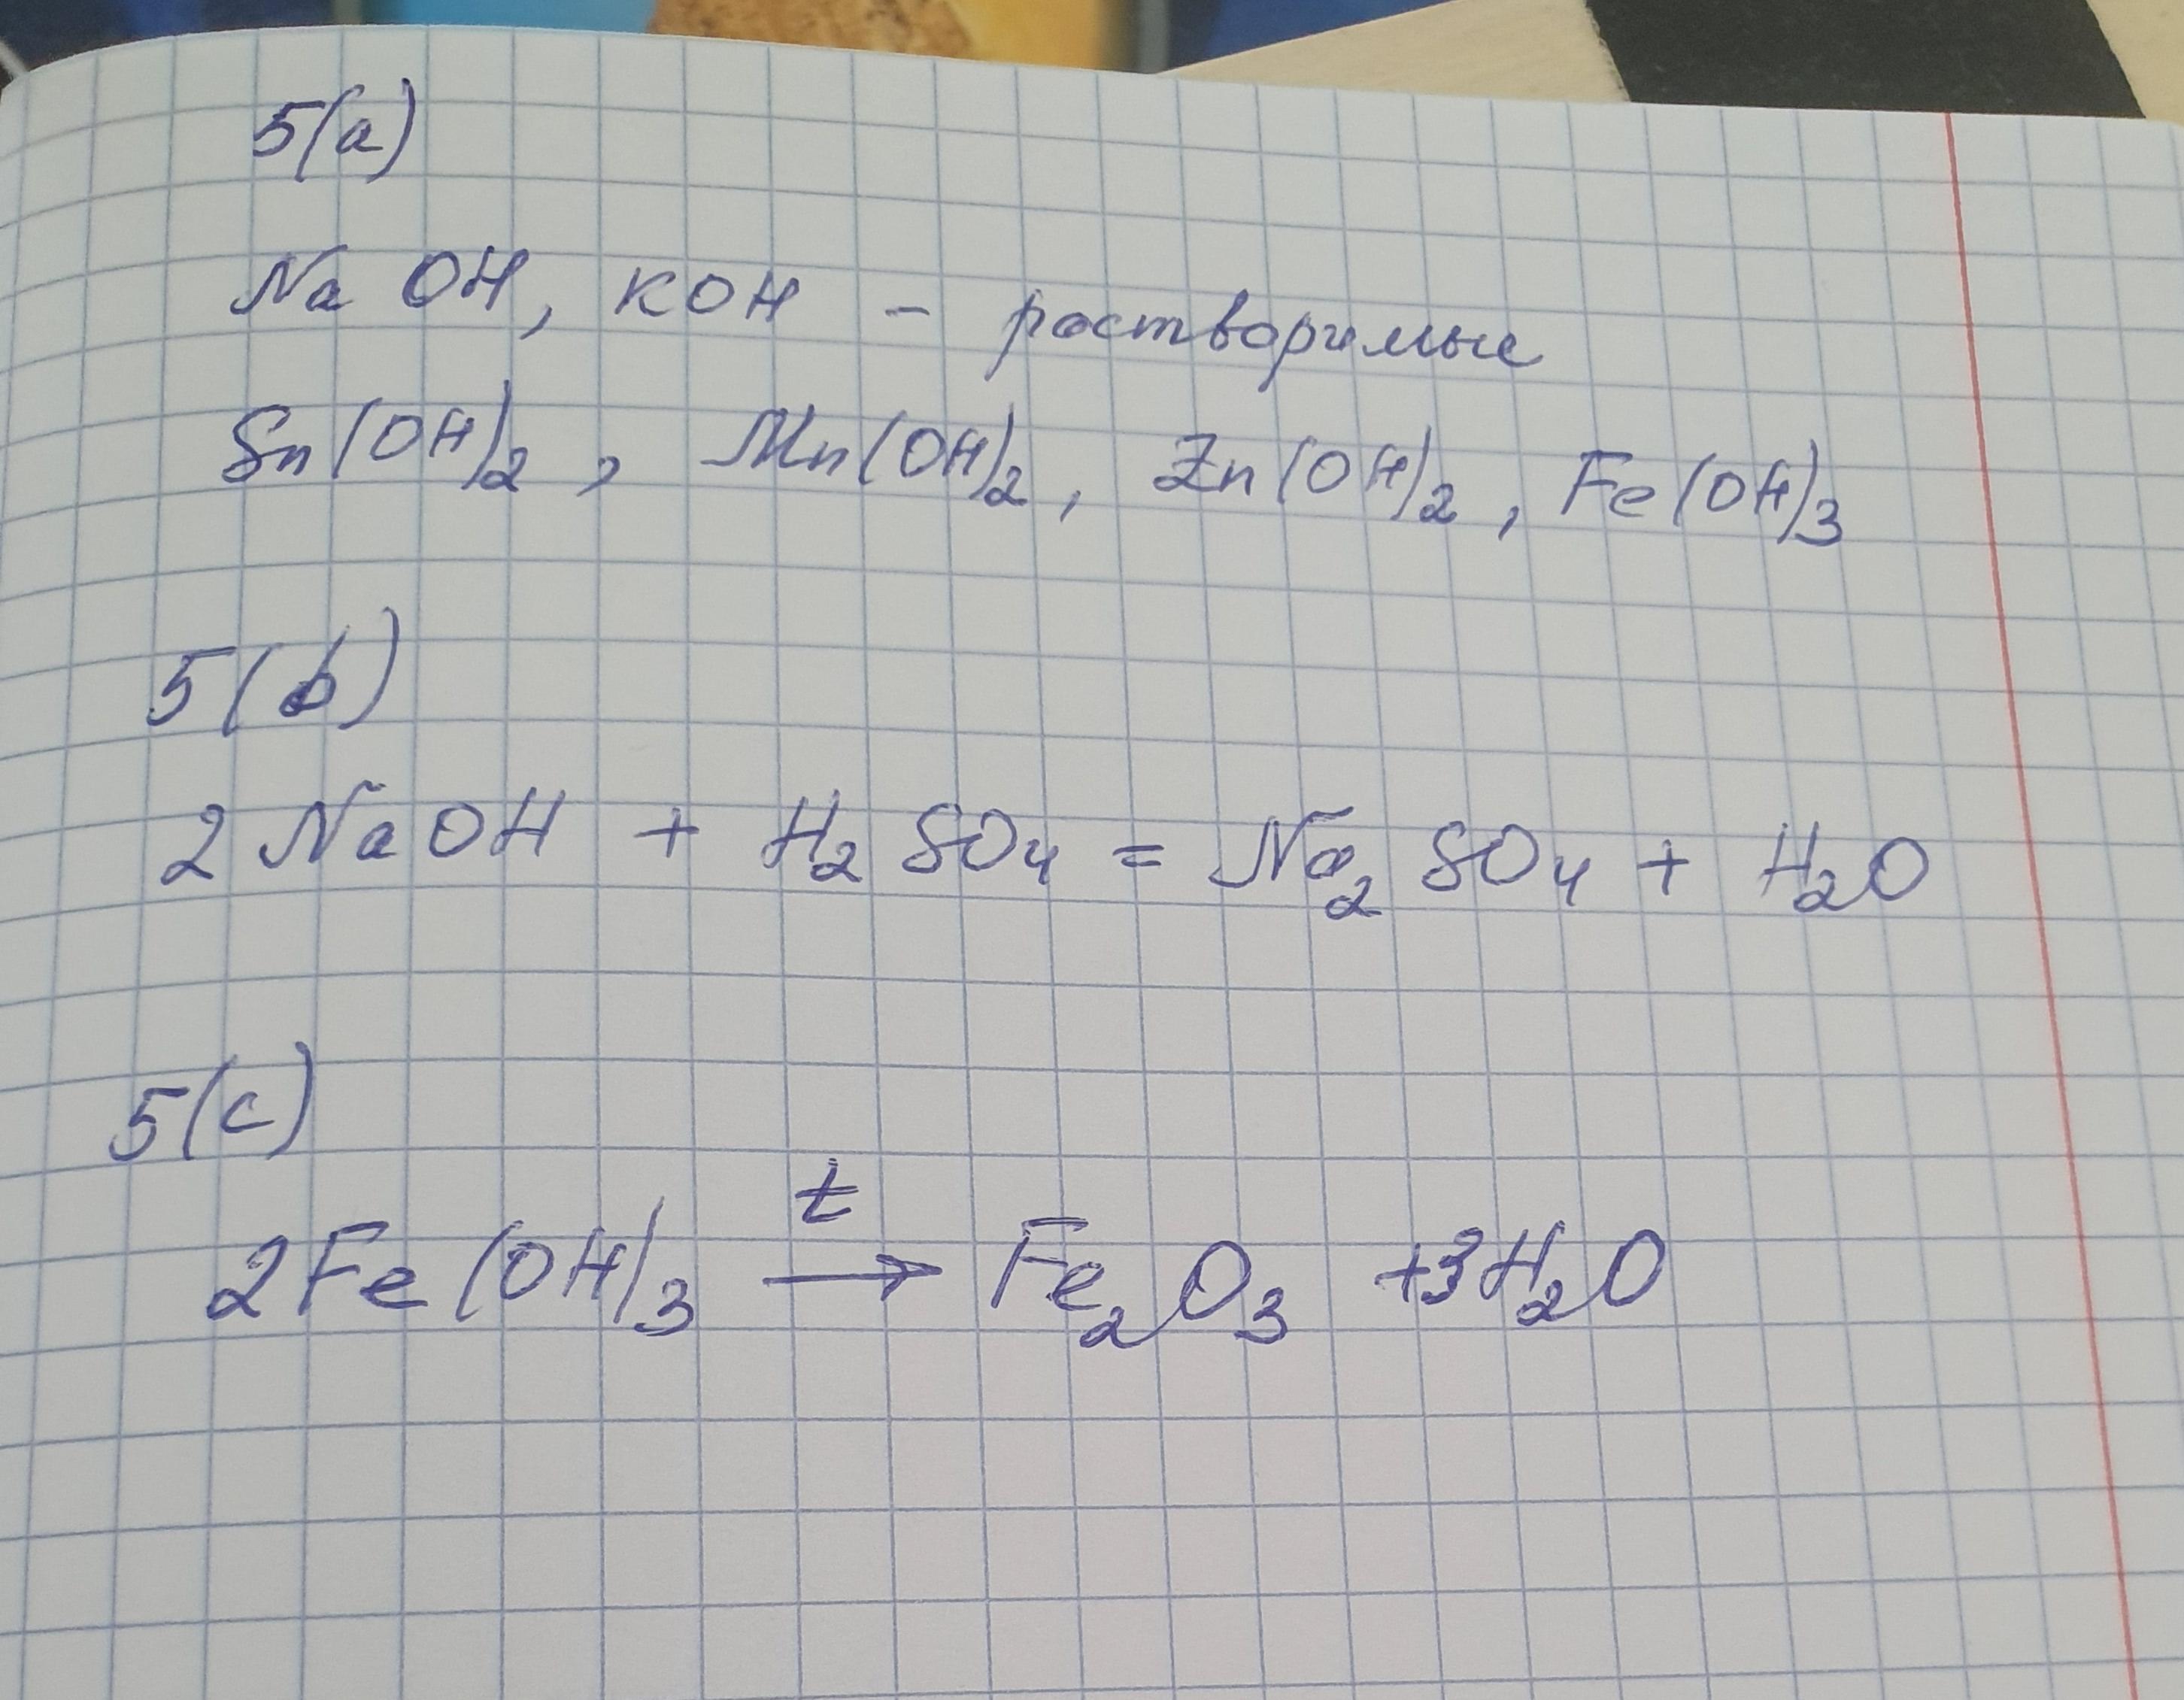 5(a)
NaOH, KOH – растворимые
Sn(OH)₂, Mn(OH)₂, Zn(OH)₂, Fe(OH)₃
5(b)
2NaOH + H₂SO₄ = Na₂SO₄ + H₂O
5(c)
2Fe(OH)₃ —t→ Fe₂O₃ +3H₂O